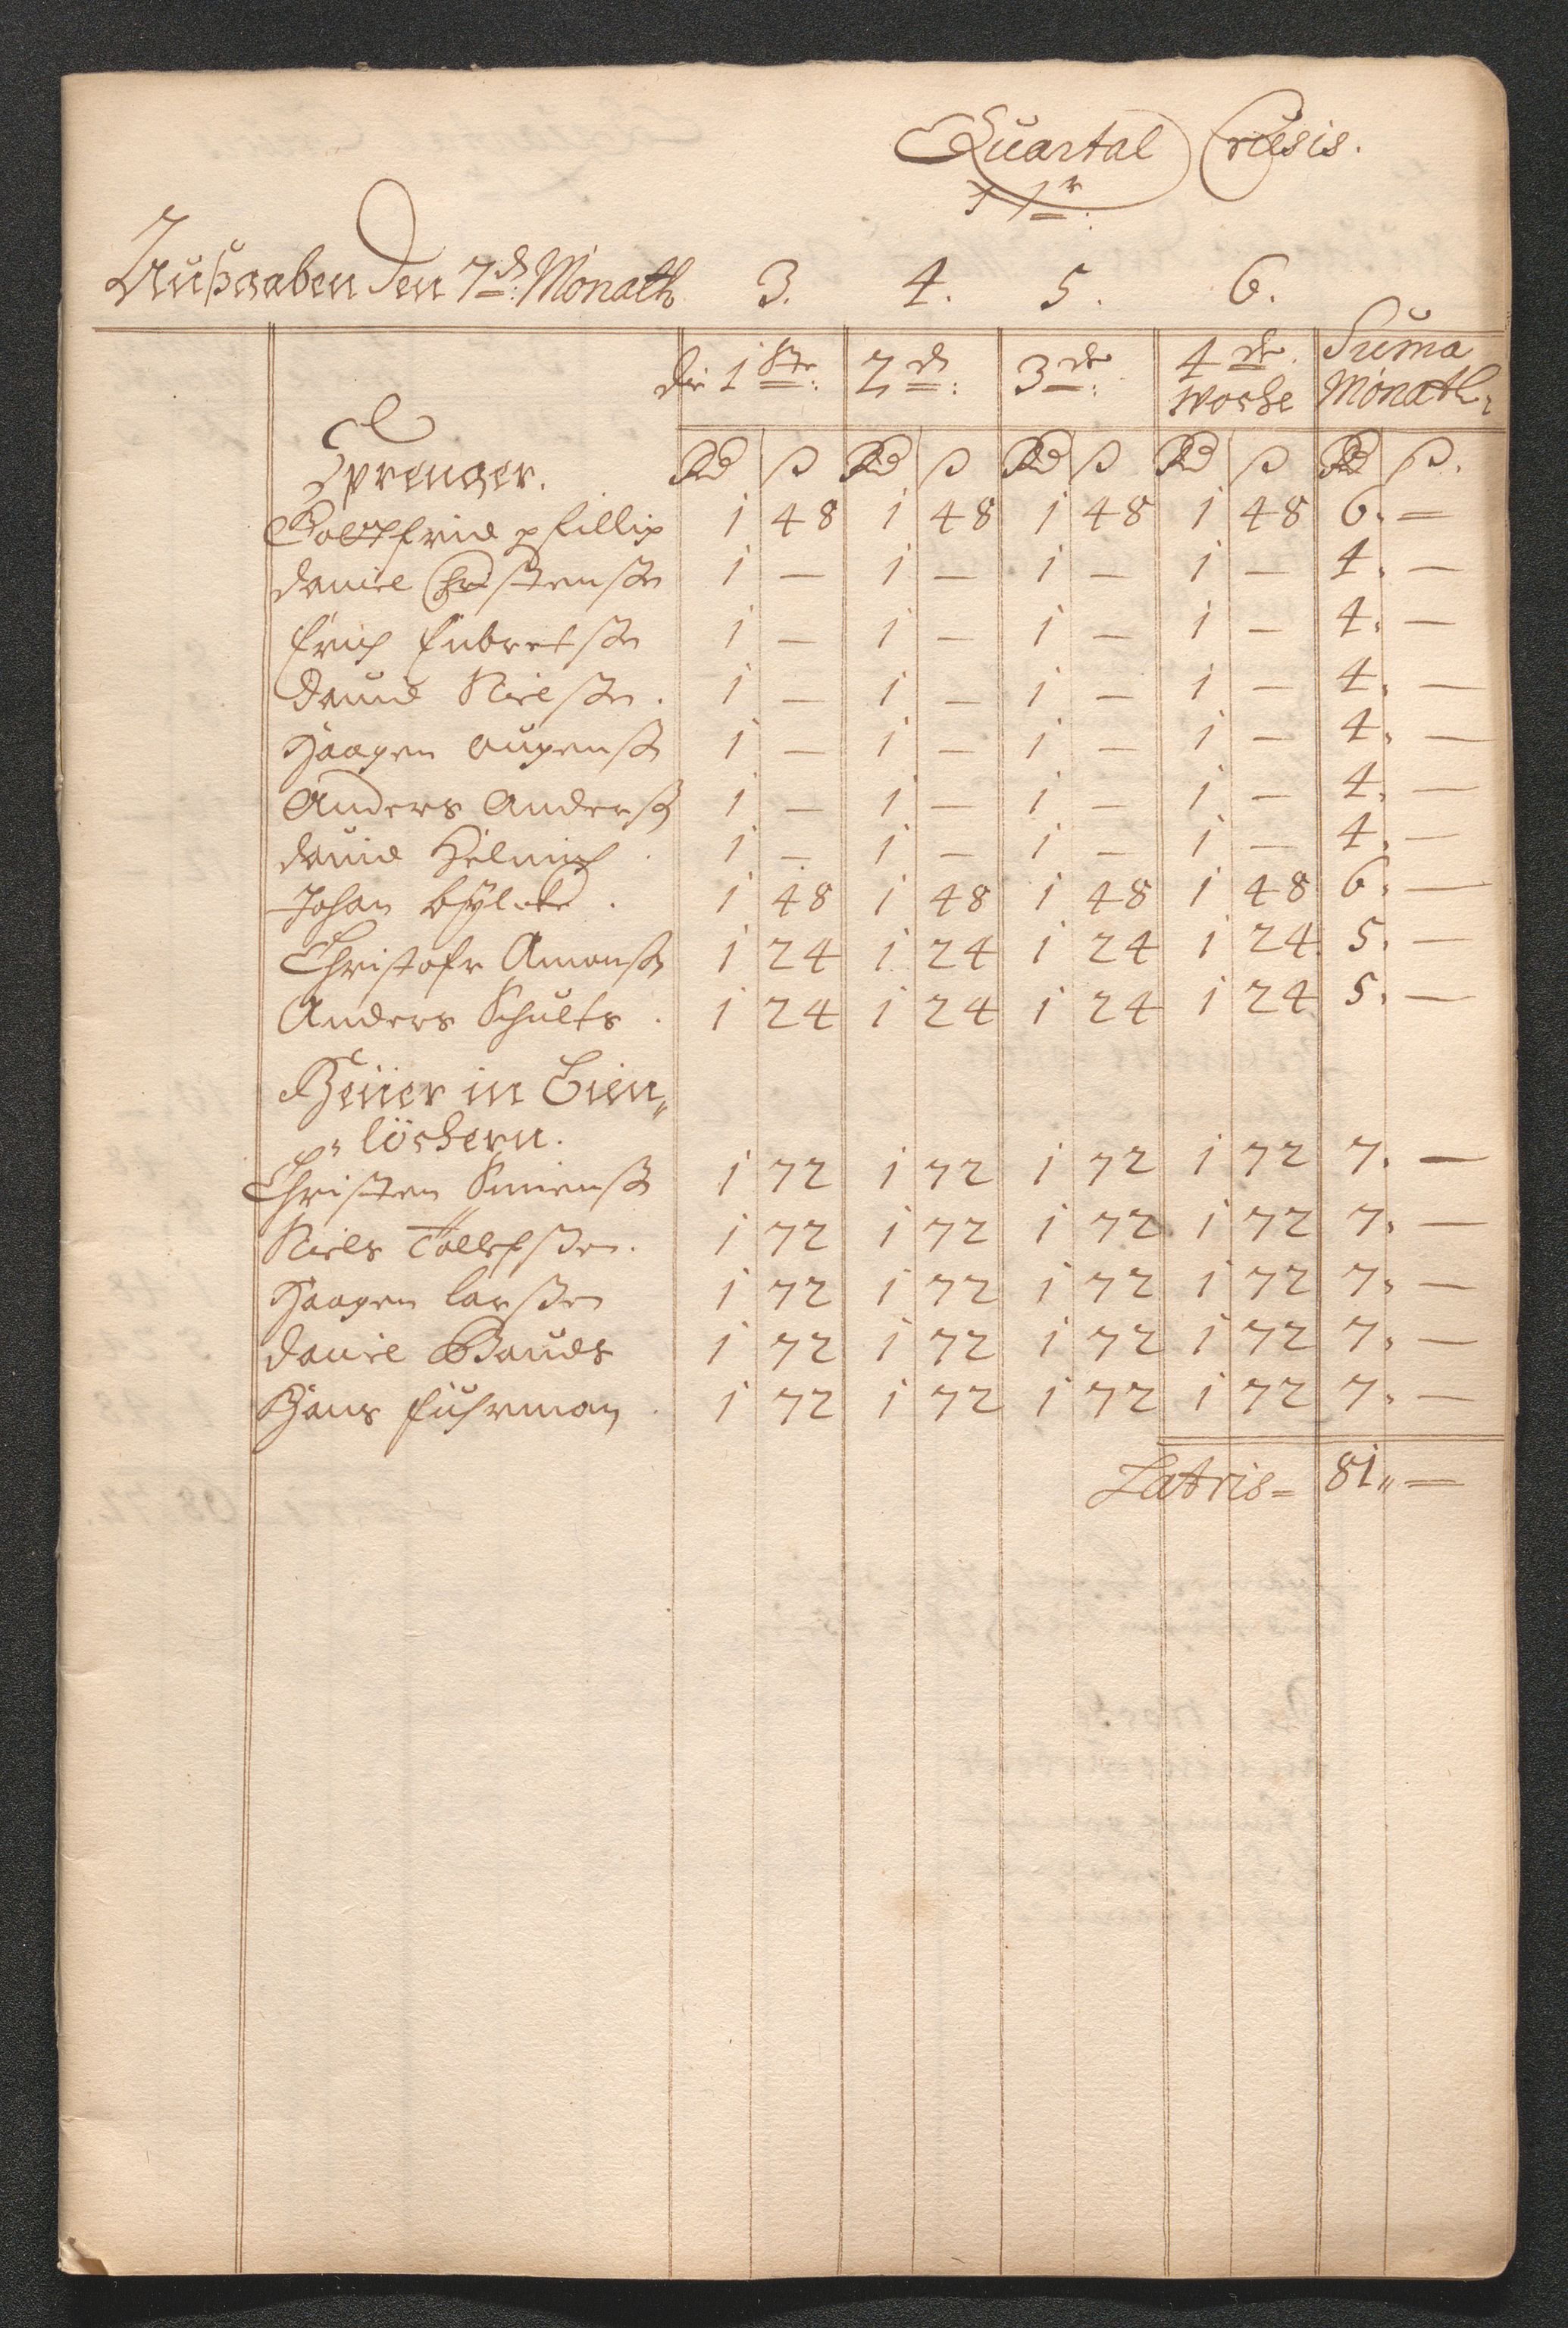 Quartal Crusis.
Außgaben den 7d: Monath 3. 4. 5. 6.
die 1ste: 2d: 3de: 4de. Woche Suma Monath:
Rd ß Rd ß Rd ß Rd ß Rd ß.
Sprenger.
Gottfried Phillip 1 48 1 48 1 48 1 48 6. —
Daniel Christensen 1 — 1 — 1 — 1 — 4. —
Erich Enbretsen 1 — 1 — 1 — 1 — 4. —
David Nielsen. 1 — 1 — 1 — 1 — 4. —
Haagen 1 — 1 — 1 — 1 — 4. —
Anders Anderß 1 — 1 — 1 — 1 — 4. —
David Helmich. 1 — 1 — 1 — 1 — 4. —
Johan 1 48 1 48 1 48 1 48 6. —
Christofr Amonß 1 24 1 24 1 24 1 24 5. —
Anders Schults. 1 24 1 24 1 24 1 24 5. —
in
löchern.
Christen 1 72 1 72 1 72 1 72 7. —
Niels Tollefßen. 1 72 1 72 1 72 1 72 7. —
Haagen Larßen 1 72 1 72 1 72 1 72 7. —
Daniel 1 72 1 72 1 72 1 72 7. —
Hans Fuhrman. 1 72 1 72 1 72 1 72 7. —
Latris = 81„ —